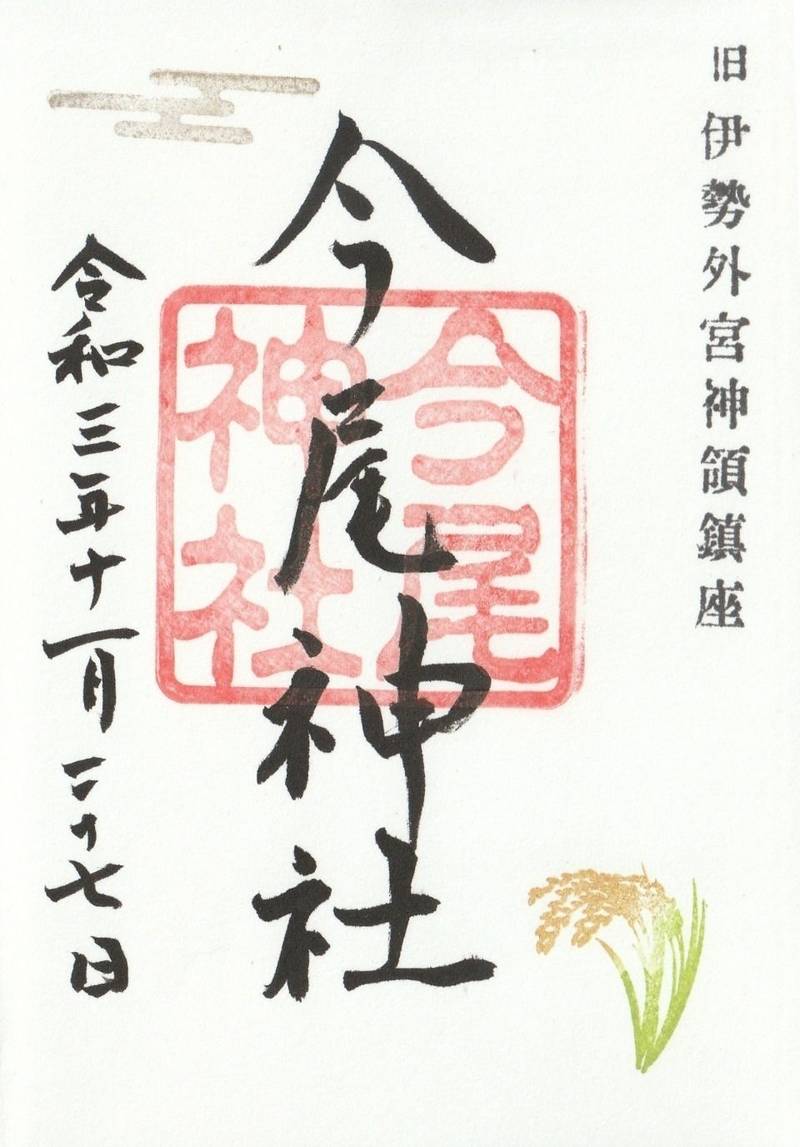 旧伊勢外宮神領鎮座
今尾神社
今尾
神社
令和三年十一月二十七日